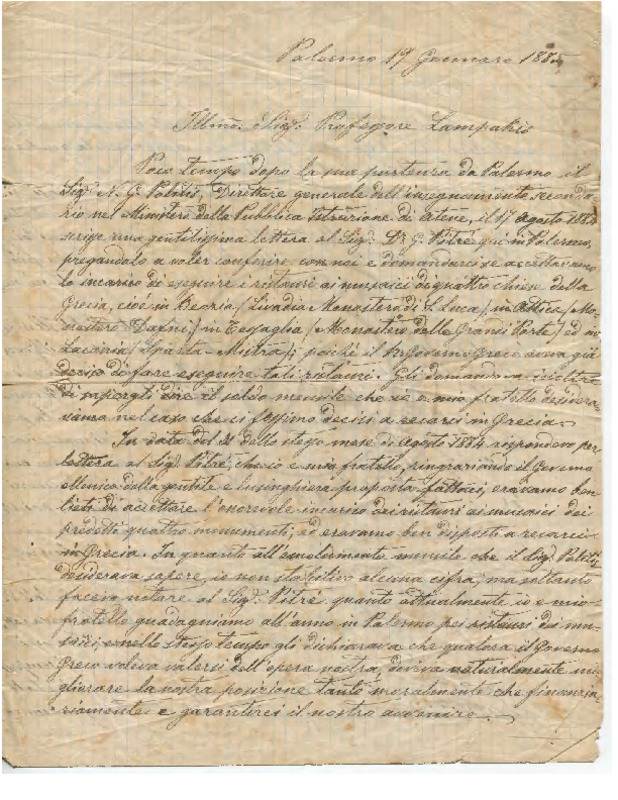 Palermo 19 Gennaro 1885
Illmo. Sigr. Professore Lampakis
Poco tempo dopo la sua partenza da Palermo il
Sigr. N. G. Politis, Direttore generale dell'insegnamento seconda-
rio nel Ministero della Pubblica Istruzione di Atene, il 17 agosto 1884
scrisse una gentilissima lettera al Sigr. Dr. G. Pitrè qui in Palermo,
pregandolo a voler conferire con noi e domandarci se accettavamo
lo incarico di eseguire i ristauri ai musaici di quattro chiese della
Grecia, cioè in Beozia / Livadia Monastero di S. Luca /, in Attica / Mo-
nastero Dafne /, in Tessaglia / Monastero delle Grandi Porte / ed in
Laconia / Sparta - Mistra /; poichè il Governo Greco aveva già
deciso di fare eseguire tali ristauri. Gli domandava inoltre
di fargli dire il soldo mensile che io e mio fratello desidera-
vamo nel caso che ci fossimo decisi a recarci in Grecia.
In data del 31 dello stesso mese di Agosto 1884 rispondevo per
lettera al Sigr. Pitrè, che io e mio fratello, ringraziando il Governo
Ellenico della gentile e lusinghiera proposta fattaci, eravamo ben
lieti di accettare l'onorevole incarico dei ristauri ai musaici dei
predetti quattro monumenti, ed eravamo ben disposti a recarci
in Grecia. In quanto all'emolumento mensile che il Sigr. Politis
desiderava sapere, io non stabilivo alcuna cifra, ma soltanto
facevo notare al Sigr. Pitrè quanto attualmente io e mio
fratello guadagniamo all'anno in Palermo pei ristauri dei mu-
saici, e nello stesso tempo gli dichiarava che qualora il Governo
Greco voleva valersi dell'opera nostra, doveva naturalmente mi-
gliorare la nostra posizione tanto moralmente che finanzia-
riamente e garantirci il nostro avvenire.